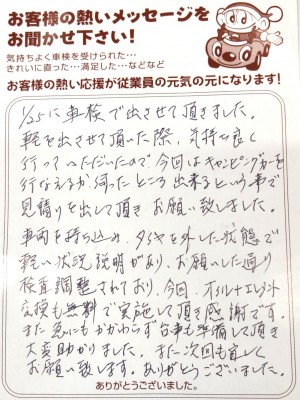 お客様の熱いメッセージを
お聞かせ下さい！
気持ちよく車検を受けられた…
きれいに直った…満足した…などなど
お客様の熱い応援が従業員の元気の元になります！
1/25に車検で出させて頂きました。
軽を出させて頂いた際、気持ち良く
行っていただいたので今回はキャンピングカーを
行なえるか伺ったところ出来るという事で
見積りを出して頂きお願い致しました。
車両を持ち込み、タイヤを外した状態で
軽い状況説明があり、お願いした通り
検査調整されており、今回、オイルエレメント
交換も無料で実施して頂き感謝です。
また急にもかかわらず台車も準備して頂き
大変助かりました。また次回も宜しく
お願い致します。ありがとうございました。
ありがとうございました。